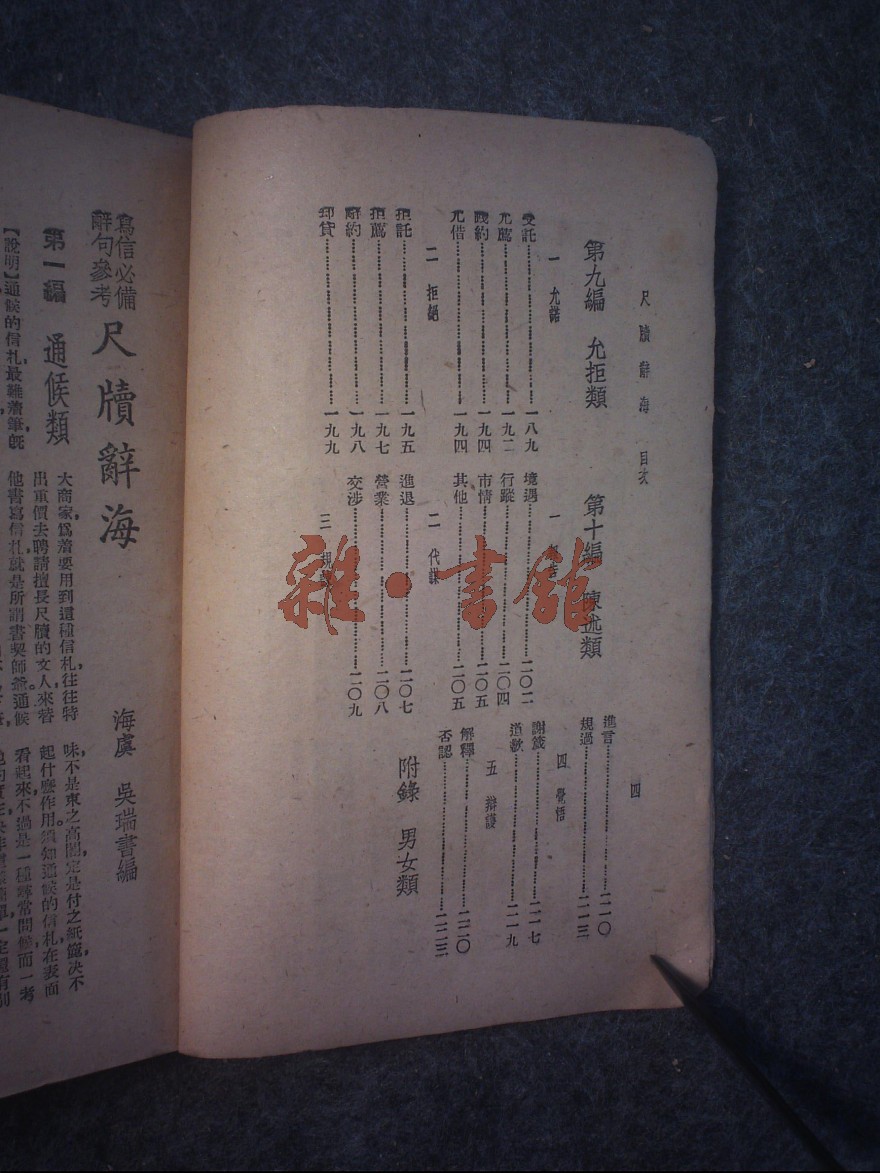 尺牘辭海 目次 四
第九編 允拒類
一 允諾
受託……一八九
允薦……一九二
踐約……一九四
允借……一九四
二 拒絕
拒託……一九五
拒薦……一九七
辭約……一九八
……一九九
第十編 陳述類
一
境遇……二〇二
行蹤……二〇四
市情……二〇五
其他……二〇五
二 代謀
進退……二〇七
營業……二〇八
交涉……二〇九
三 規
進言……二一〇
規過……二一三
四 覺悟
謝箴……二一七
道歉……二一九
五 辯護
解釋……二二〇
否認……二二三
附錄 男女類
寫信必備
辭句參考
尺牘辭海
海虞 吳瑞書編
第一編 通候類
【說明】通候的信札,最難着筆,旣
大商家,爲着要用到這種信札,往往特
出重價去聘請擅長尺牘的文人來替
他書寫信札,就是所謂書契師爺。通候
味,不是束之高閣,定是付之紙簏,决不
起什麽作用。須知通候的信札,在表面
看起來,不過是一種尋常問候,而一考
雜·書館